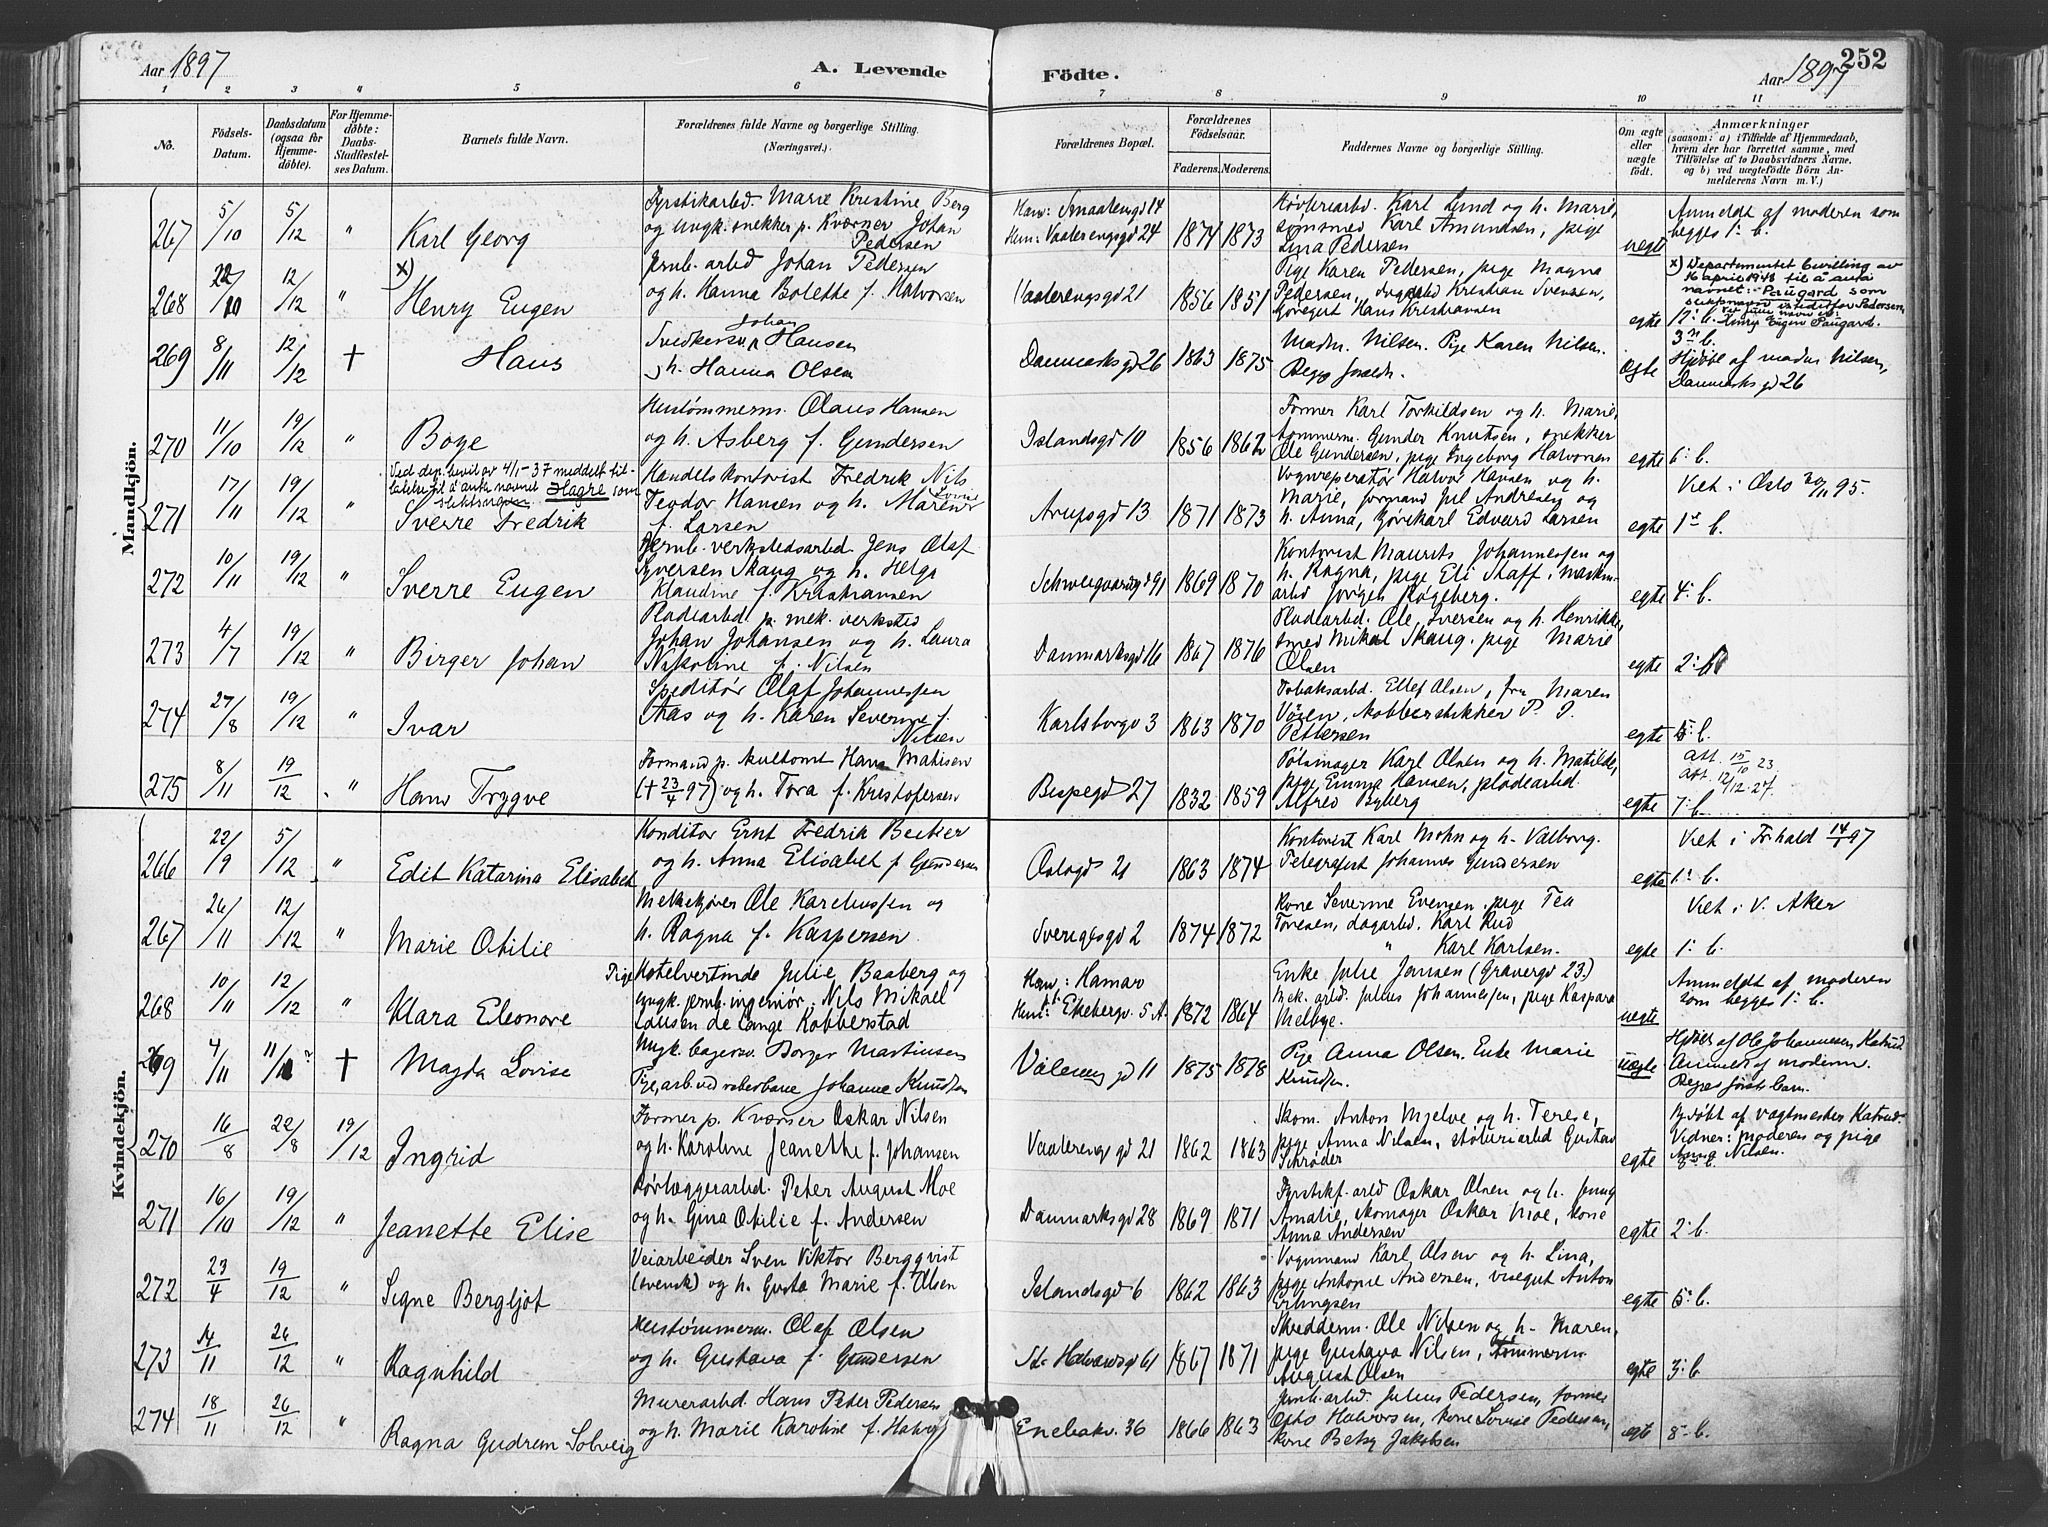 252
Aar 1897
A. Levende
Födte.
Aar 1897
1 2 3 " 5 6 7 8 9 10 11
No.
Födsels-
Datum.
Daabsdatum
(ogsaa for
Hjemme-
döbte).
For Hjemme-
döbte:
Daabs-
Stadfæstel-
ses Datum.
Barnets fulde Navn.
Forældrenes fulde Navne og borgerlige Stilling.
(Næringsvei.)
Forældrenes Bopæl.
Forældrenes
Födselsaar.
Faderens. Moderens.
Faddernes Navne og borgerlige Stilling.
Om ægte
eller
uægte
födt.
Anmærkninger
(saasom: a) i Tilfælde af Hjemmedaab,
hvem der har forrettet samme, med
Tilföielse af to Daabsvidners Navne.
og b) ved uægtefödte Börn An-
melderens Navn m. V.)
Mandkjön.
267 5/10 5/12 " Karl Georg
Fyrstikarbd. Marie Kristine Berg
og ungk. snekker p. Kværner Johan
Pedersen
Han: Smaalensgd 14
Hun: Vaalerengsgd 24
1874 1873
Karl Lund og h. Marie,
Karl Amundsen, pige
Lina Pedersen
uegte
Anmeldt af moderen som
begges 1' b.
268 22/10 12/12 " x) Henry Eugen
Jernb. arbd Johan Pedersen
og h. Hanna Bolette f. Halvorsen
Vaalerengsgd 21
1856 1851
Pige Karen Pedersen, pige Magna
Pedersen, Kristian Svensen,
Hans Kristiansen
egte
x) Departementet bevilling av
16 april 1948 til å anta
navnet: Paugard som
12' b.
269 8/11 12/12 † Hans
Snedkersv. Johan Hansen
h. Hanna Olsen
Danmarksgd 26
1863 1875
Madm. Nilsen. Pige Karen Nilsen.
Begge foræld.
Ægte
3' b.
Hjdøbt af madm Nilsen,
Danmarksgd 26
270 11/10 19/12 " Boye
Hustømmerm. Olaus Hansen
og h. Asberg f. Gundersen
Islandsgd 10
1856 1862
Former Karl Torkildsen og h. Marie,
tømmerm. Gunder Knutsen, snekker
Ole Gundersen, pige Ingeborg Halvorsen
egte 6' b.
271 17/11 19/12 "
Ved dep. bevil av 4/1-37 meddelt til-
latelse til å anta navnet Hagre som
slektsnavn
Sverre Fredrik
Handelskontorist Fredrik Nils
Teodor Hansen og h. Maren Lovise
f. Larsen
Arupsgd 13
1871 1873
Halvor Hansen og h.
Marie, formand Andresen og
h. Anna, kjørekarl Edvard Larsen
egte
Viet i Oslo 20/11 95.
1' b.
272 10/11 19/12 " Sverre Eugen
Jernb. verkstedsarbd. Jens Olaf
Syversen Skaug og h. Helga
Klaudine f. Kristiansen
Schweigaardsgd 91
1869 1870
Kontorist Maurits Johannesen og
h. Ragna, pige Eli Staff, maskin-
arbd Jørgen Rogeberg.
egte 4' b.
273 4/7 19/12 " Birger Johan
Pladearbd. p. mek. verksted
Johan Johansen og h. Laura
Nikoline f. Nilsen
Danmarksgd 16
1867 1876
Pladearbd. Ole Iversen og h. Henrikke,
smed Mikal Skaug, pige Marie
Olsen
egte 2' b
274 27/8 19/12 " Ivar
Speditør Olaf Johannessen
Aas og h. Karen Severine f.
Nilsen
Karlsborgv 3
1863 1870
Tobaksarbd. Ellef Olsen, fru Maren
Vøien, kobberstikker P. J.
Pettersen
egte 5' b.
275 8/11 19/12 " Hans Trygve
Formand p. Hans Matisen
(† 23/4 97) og h. Tora f. Kristofersen
Bispegd 27
1832 1859
Pølsmager Karl Olsen og h. Matilde,
pige Emma Hansen, pladearbd.
Alfred Byberg
egte
Att. 15/10 23.
Att. 12/12-27.
7' b.
Kvindekjön.
266 22/9 5/12 " Edit Katarina Elisabet
Konditor Ernst Fredrik Becker
og h. Anna Elisabet f Gundersen
Oslogd 21
1863 1874
Kontorist Karl Mohn og h. Valborg.
Telegrafist Johannes Gundersen
egte
Viet i Fr.hald 14/1 97
1' b.
267 26/11 12/12 " Marie Otilie
Melkekjører Ole Kareliussen og
h. Ragna f. Kaspersen
Sverigesgd 2
1874 1872
Kone Severine Evensen, pige Tea
Toresen, dagarbd. Karl Rud
" Karl Karlsen.
egte
Viet i V. Aker
1' b.
268 10/11 12/12 " Klara Eleonore
Pige Hotelvertinde Julie Baaberg og
ungk. jernb. ingeniør Nils Mikael
Lousen de Lange Kobberstad
Han: Hamar
Hun: Ekebergv. 5 A.
1872 1864
Enke Julie Jansen (Gravergd 23.)
Mek. arbd. Julius Johannessen, pige Kaspara
Melbye.
uegte
Anmeldt af moderen
som begges 1' b.
269 4/11 11/11 † Magda Lovise
Ungk. Borger Martinsen
Pige, arb. ved reberbane Johanne Knudsen
Vålereng gd 11
1875 1878
Pige Anna Olsen. Enke Marie
Knudsen.
uægte
Hjdøbt af Ole Johannessen Katrud
Anmeldt af moderen.
Begges første barn.
270 16/8 22/8 19/12 Ingrid
Former p. Kværner Oskar Nilsen
og h. Karoline Jeanette f. Johansen
Vaalerengsgd 21
1862 1863
Skom. Anton Mjelve og h. Terese,
pige Anna Nilsen, støberiarbd Gustav
Schrøder
egte
Hjdøbt af vagtmester Katrud.
Vidner: moderen og pige
Anna Nilsen.
8' b.
271 16/10 19/12 " Jeanette Elise
Rørlæggerarbd. Peter August Moe
og h. Gina Otilie f. Andersen
Danmarksgd 28
1869 1871
Fyrstikf. arbd Oskar Olsen og h. Jenny
Amalie, skomager Oskar Moe, kone
Anna Andersen
egte 2' b.
272 23/4 19/12 " Signe Bergljot
Veiarbeider Sven Viktor Bergqvist
(svensk) og h. Gusta Marie f. Olsen
Islandsgd 6
1862 1863
Vognmand Karl Olsen og h. Lina,
pige Antonie Andersen, visegut Anton
Erlingsen
egte 5' b.
273 14/11 26/12 " Ragnhild
Hustømmerm. Olaf Olsen
og h. Gustava f. Gundersen
St. Halvardsgd 61
1867 1871
Skredderm. Ole Nilsen og h. Maren,
pige Gustava Nilsen, tømmerm
August Olsen
egte 3' b
274 18/11 26/12 " Ragna Gudrun Solveig
Murerarbd. Hans Peter Pedersen
og h. Marie Karoline f. Halvors
Enebakv. 36
1866 1863
Jernb. arbd. Julius Pedersen, former
Otto Halvorsen, kone Lovise Pedersen,
kone Betsy Jakobsen
egte 8' b.